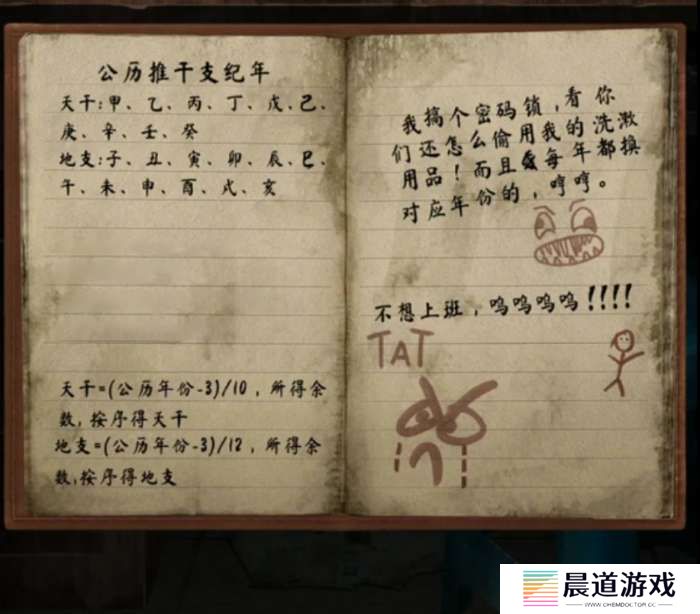 公历推干支纪年
天干:甲、乙、丙、丁、戊、己、
庚、辛、壬、癸
地支:子、丑、寅、卯、辰、巳、
午、未、申、酉、戌、亥
天干=(公历年份-3)/10，所得余
数,按序得天干
地支=(公历年份-3)/12，所得余
数,按序得地支
我搞个密码锁,看你
们还怎么偷用我的洗漱
用品！而且每年都换
对应年份的,哼哼。
不想上班,呜呜呜呜!!!!
TAT
晨道游戏
WWW.CHEMDOCTOR.CC